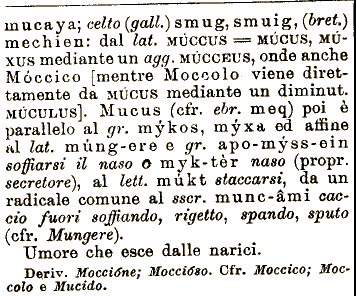 mucaya; celto (gall.) smug, smuig, (bret.)
mechien: dal lat. MÚCCUS = MÚCUS, MÚ-
XUS mediante un agg. MÚCCEUS, onde anche
Móccico [mentre Moccolo viene diret-
tamente da MÚCUS mediante un diminut.
MÚCULUS]. Mucus (cfr. ebr. meq) poi è
parallelo al gr. mýkos, mýxa ed affine
al lat. múng-ere e gr. apo-mýss-ein
soffiarsi il naso o myk-tèr naso (propr.
secretore), al lett. múkt staccarsi, da un
radicale comune al sscr. munc-âmi cac-
cio fuori soffiando, rigetto, spando, sputo
(cfr. Mungere).
Umore che esce dalle narici.
Deriv. Moccióne; Moccióso. Cfr. Moccico; Moc-
colo e Mucido.